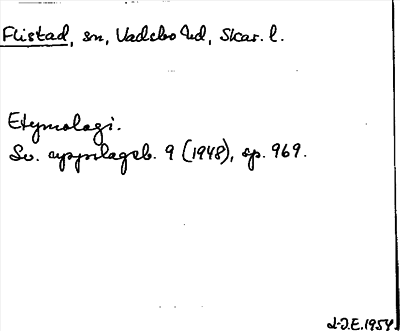 Flistad, sn, Vadsbo hd, Skar. l.
Etymologi.
Sv. uppslagsb. 9 (1948), sp. 969.
L-J.E. 1954